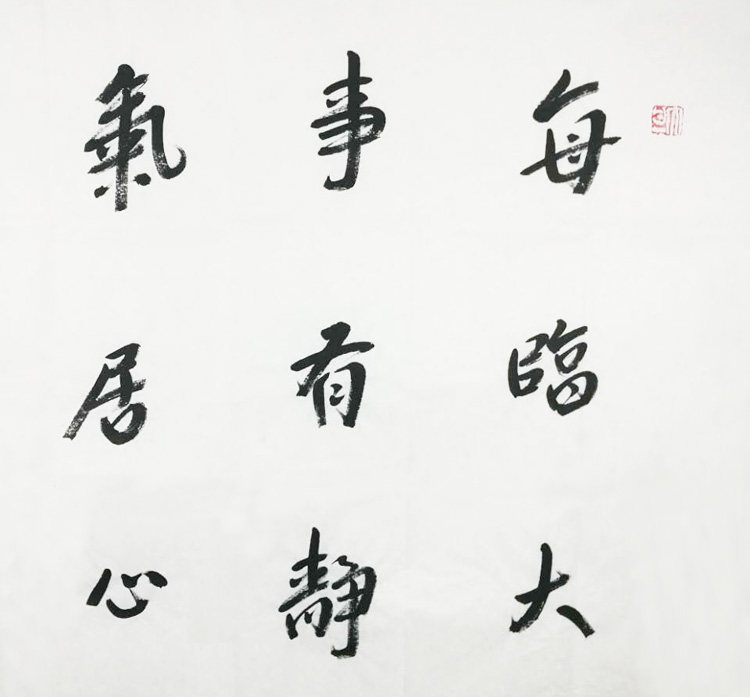 每臨大
事有靜
氣居心